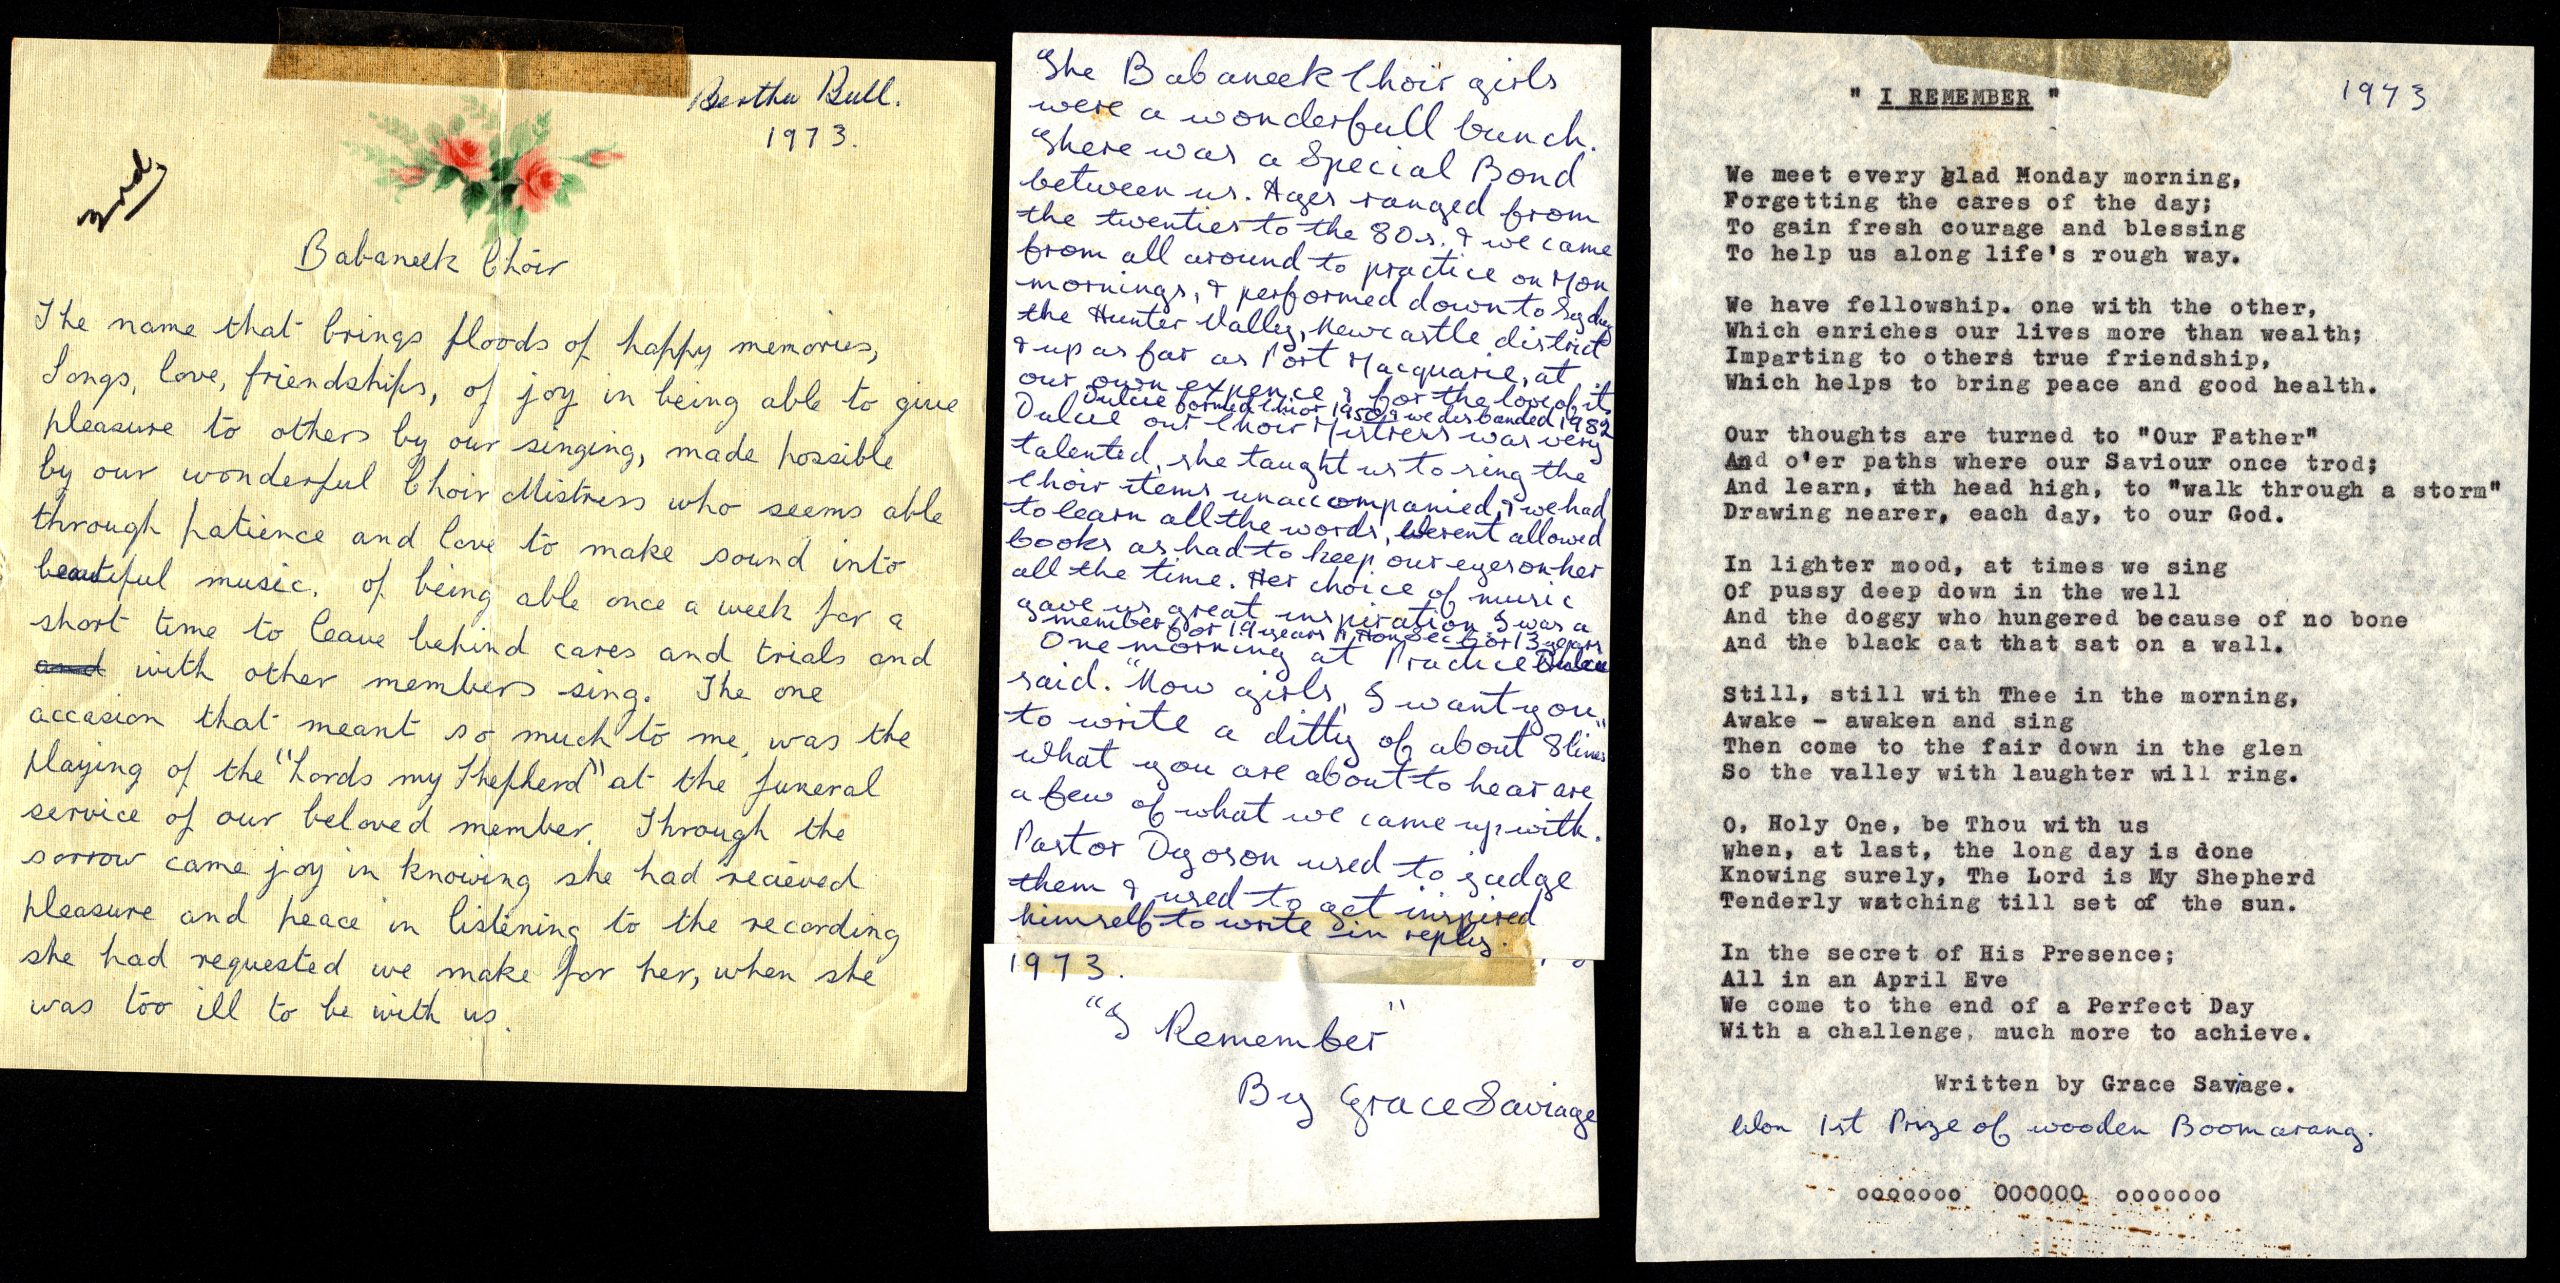 Bertha Bull.
1973.
2nd,
Babaneek Choir
The name that brings floods of happy memories,
Songs, love, friendships, of joy in being able to give
pleasure to others by our singing, made possible
by our wonderful Choir Mistress who seems able
through patience and love to make sound into
beautiful music. of being able once a week for a
short time to leave behind cares and trials and
and with other members sing. The one
occasion that meant so much to me, was the
playing of the "Lords my Shepherd" at the funeral
service of our beloved member. Through the
sorrow came joy in knowing she had recieved
pleasure and peace in listening to the recording
she had requested we make for her, when she
was too ill to be with us.
The Babaneek Choir girls
were a wonderfull bunch.
There was a Special Bond
between us. Ages ranged from
the twenties to the 80s. & we came
from all around to practice on Mon
mornings, & performed down to Sydney
the Hunter Valley, Newcastle district
& up as far as Port Macquarie, at
our own expence & for the love of it.
Dulcie formed Choir 1950 & we disbanded 1982
Dulcie our Choir Mistress was very
talented, she taught us to sing the
Choir items unaccompanied, & we had
to learn all the words, Werent allowed
books as had to keep our eyes on her
all the time. Her choice of music
gave us great inspiration I was a
member for 19 years & Hon Sec for 13 years
One morning at Practice Dulcie
said. "Now girls, I want you"
to write a ditty of about 8 lines
what you are about to hear are
a few of what we came up with.
Pastor Dyoson used to judge
them & used to get inspired
himself to write in reply.
1973.
"I Remember"
By Grace Saviage
1973
" I REMEMBER "
We meet every glad Monday morning,
Forgetting the cares of the day;
To gain fresh courage and blessing
To help us along life's rough way.
We have fellowship. one with the other,
Which enriches our lives more than wealth;
Imparting to others true friendship,
Which helps to bring peace and good health.
Our thoughts are turned to "Our Father"
And o'er paths where our Saviour once trod;
And learn, with head high, to "walk through a storm"
Drawing nearer, each day, to our God.
In lighter mood, at times we sing
Of pussy deep down in the well
And the doggy who hungered because of no bone
And the black cat that sat on a wall.
Still, still with Thee in the morning,
Awake - awaken and sing
Then come to the fair down in the glen
So the valley with laughter will ring.
O, Holy One, be Thou with us
when, at last, the long day is done
Knowing surely, The Lord is My Shepherd
Tenderly watching till set of the sun.
In the secret of His Presence;
All in an April Eve
We come to the end of a Perfect Day
With a challenge, much more to achieve.
Written by Grace Saviage.
Won 1st Prize of wooden Boomarang.
ooooooo OOOOOO ooooooo